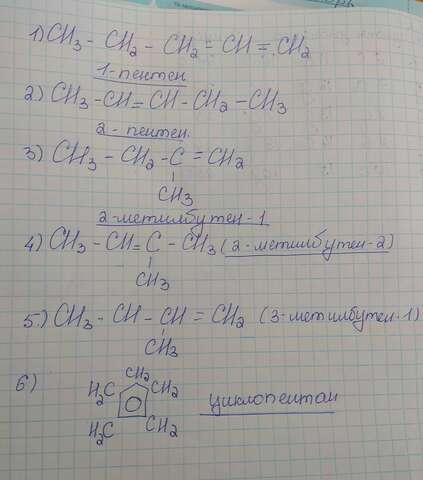 1) CH3 - CH2 - CH2 = CH = CH2
1-пентен
2) CH3 - CH = CH - CH2 - CH3
2 - пентен.
3) CH3 - CH2 - C = CH2
CH3
2-метилбутен-1
4) CH3 - CH = C - CH3 (2-метилбутен-2)
CH3
5.) CH3 - CH - CH = CH2 (3-метилбутен-1)
CH3
6)
CH2
H2C CH2
H2C CH2
циклопентан